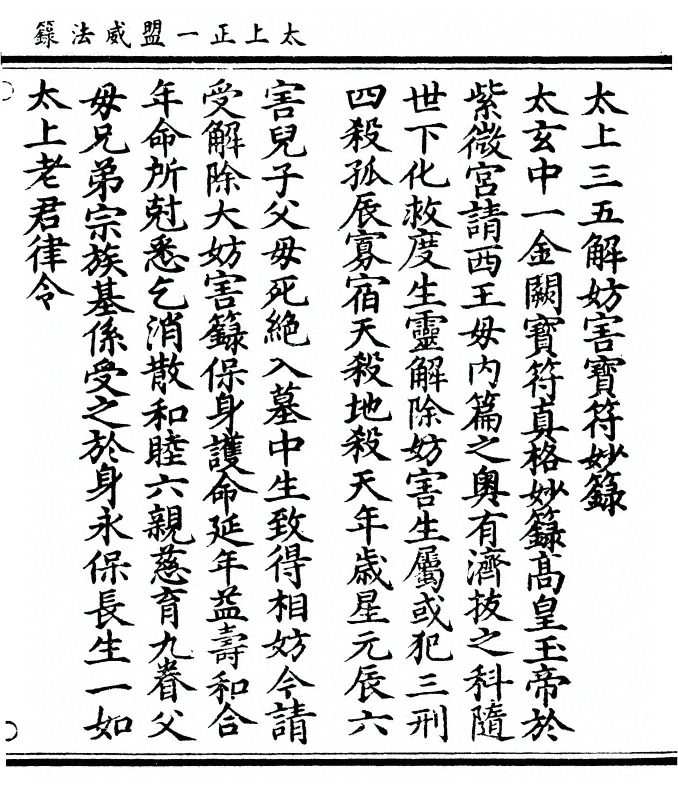 太上正一盟威法籙
太上三五解妨害寶符妙籙
太玄中一金闕寶符真格妙籙高皇玉帝於
紫微宮請西王母内篇之奥有濟拔之科隨
世下化救度生靈解除妨害生屬或犯三刑
四殺孤辰寡宿天殺地殺天年歲星元辰六
害兒子父母死絶入墓中生致得相妨今請
受解除大妨害籙保身護命延年益壽和合
年命所尅悉乞消散和睦六親慈育九眷父
母兄弟宗族基係受之於身永保長生一如
太上老君律令